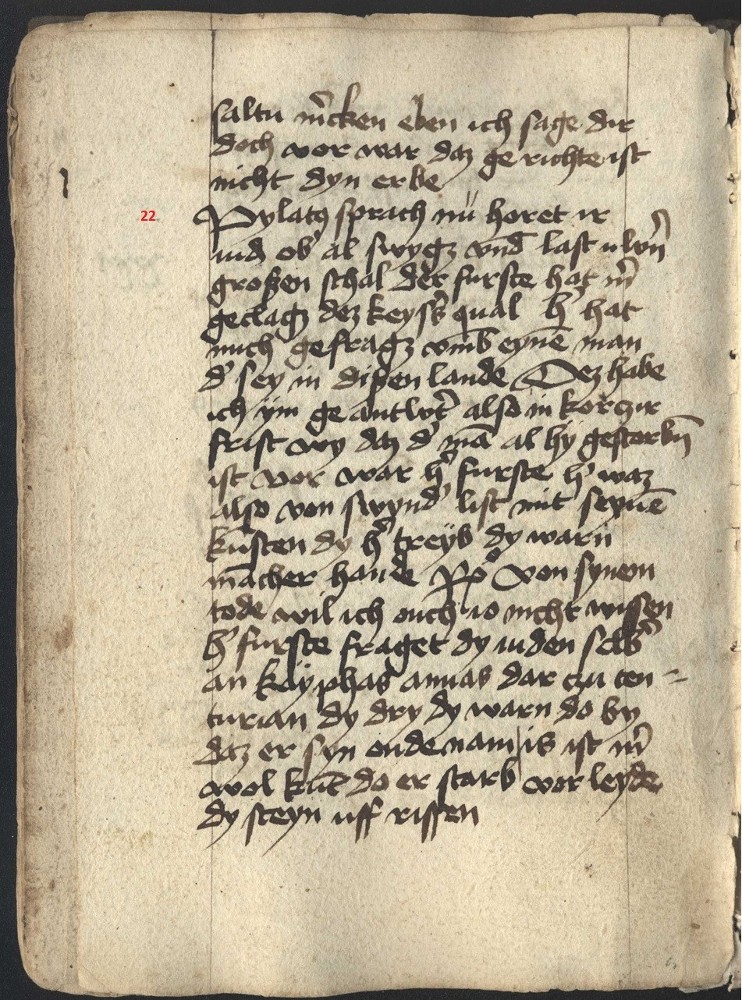 saltu m̄cken eben ich sage dir
doch vor war daz ge richte ist
nicht dyn erbe
22. Pylatꝫ sprach nu horet ir
iudꝫ ob' al swygꝫ vnd last uwrn̄
großen schal der furste hat m̄
geclagꝫ dez keysꝫ qual h' hat
mich gefragꝫ vmb eynē man
d' sey in dißen lande Dez habe
ich ym ge antwt' also in korczir
frist wy daz d' mā al hy gestorbn̄
ist vor war h' furste h' waz
also von swynd' list mit seynē
kunsten dy h' treyb dy warn
mācher hande Rp̄o von synem
tode wil ich ouch io nicht wissen
h' furste fraget dy iuden selb'
an kayphas annas dar czu cen =
turian dy dry dy warn do by
daz er syn ende nam is ist m̄
wol kūt do er starb vor leyde
dy steyn uff rissen